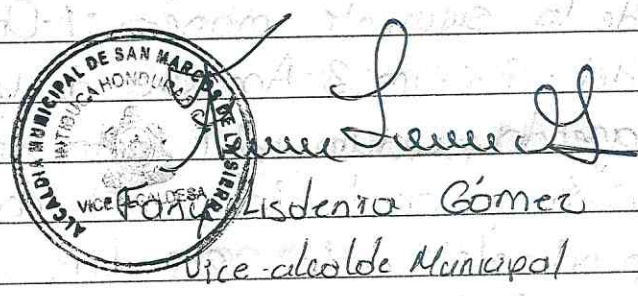 ALCALDIA MUNICIPAL DE SAN MARCOS DE LA SIERRA
INTIBUCA HONDURAS
VICE ALCALDESA
Fany Lisdenia Gómez
Vice-alcalde Municipal